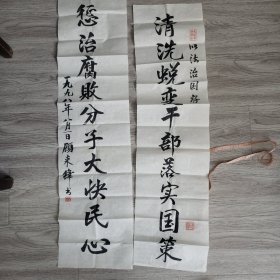 以法治国好
清洗蜕变干部落实国策
惩治腐败分子大快民心
一九九八年八月一日顾东锋书